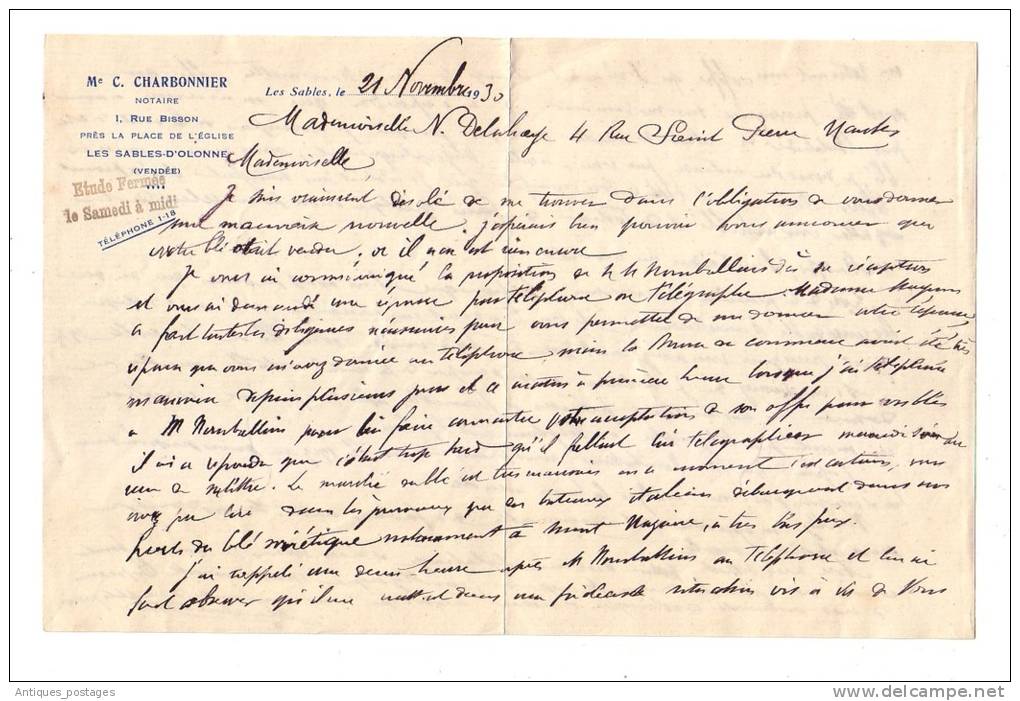 Me C. CHARBONNIER
NOTAIRE
1, RUE BISSON
PRÈS LA PLACE DE L'ÉGLISE
LES SABLES-D'OLONNE
(VENDÉE)
Etude Fermée
le Samedi à midi
TÉLÉPHONE 1-18
Les Sables, le 21 Novembre 1930
Mademoiselle N. Delahaye 4 Rue Saint Pierre Nantes
Mademoiselle
Je suis vraiment désolé de me trouver dans l'obligation de vous donner
une mauvaise nouvelle, j'espérais bien pouvoir vous annoncer que
votre blé était vendu, or il n'en est rien encore
Je vous ai communiqué la proposition de dès sa réception
et vous ai demandé une réponse par téléphone ou télégraphe. Madame
a fait toutes les diligences nécessaires pour vous permettre de me donner votre réponse,
réponse que vous m'avez donnée au téléphone, mais la Bourse de commerce avait été très
mauvaise depuis plusieurs jours et ce matin à première heure lorsque j'ai téléphoné
à M pour lui faire connaître votre acceptation de son offre pour vos blés
il m'a répondu que c'était trop tard qu'il fallait lui télégraphier mercredi soir au
lieu de . Le marché du blé est très mauvais en ce moment , vous
avez pu lire dans les journaux que des bateaux italiens débarquent dans nos
ports du blé soviétique notamment à Saint Nazaire, à très bas prix.
J'ai rappelé une demi heure après M au téléphone et lui ai
fait observer qu'il me mettait dans une situation vis à vis de Vous
Antiques_postages
delcampe.net